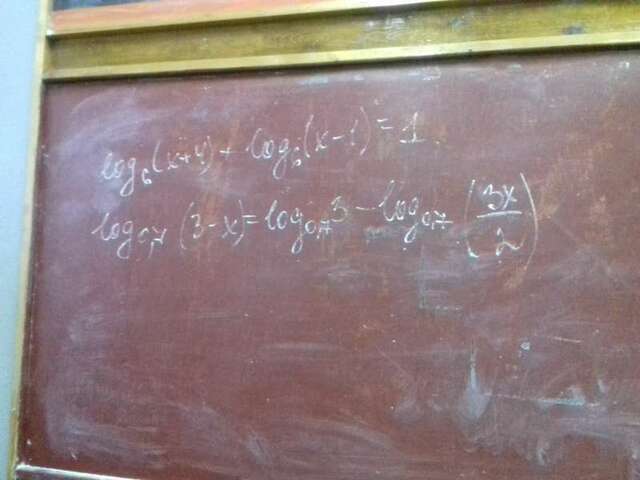 log₆(x+4) + log₆(x-1) = 1
log₀,₇(3-x) = log₀,₇3 - log₀,₇(3x/2)